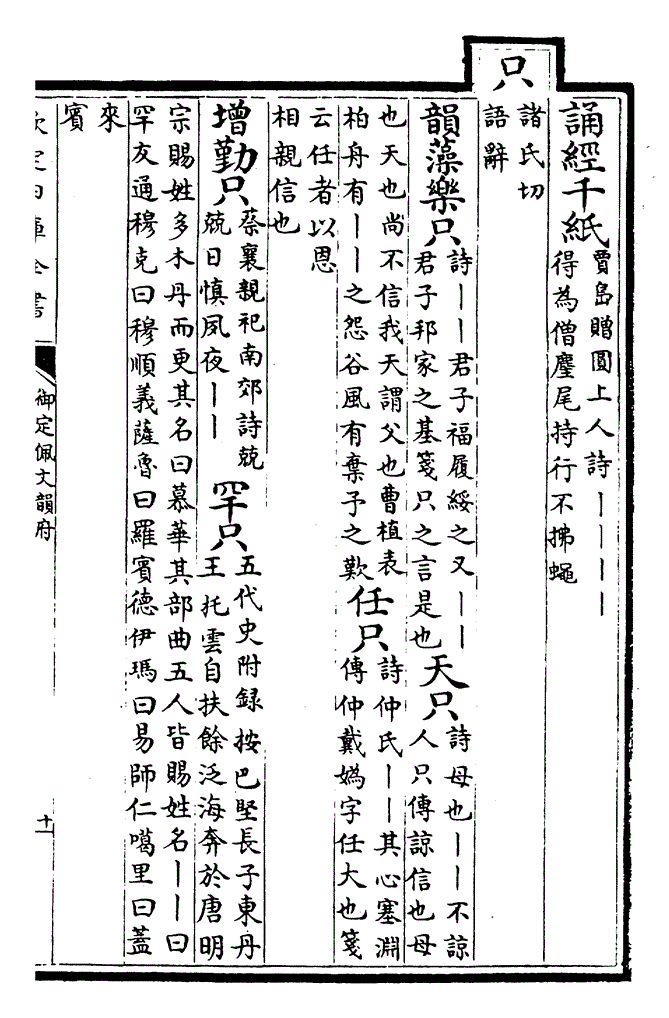 誦經千紙賈島贈圓上人詩丨丨丨丨
得為僧麈尾持行不拂蠅
只諸氏切
語辭
韻藻樂只詩丨丨君子福履綏之又丨丨
君子邦家之基箋只之言是也
天只詩母也丨丨不諒
人只傳諒信也母
也天也尚不信我天謂父也曹植表
柏舟有丨丨之怨谷風有棄予之歎
任只詩仲氏丨丨其心塞淵
傳仲戴媯字任大也箋
云任者以恩
相親信也
增勤只蔡襄親祀南郊詩兢
兢日慎夙夜丨丨
罕只五代史附録按巴堅長子東丹
王托雲自扶餘泛海奔於唐明
宗賜姓多木丹而更其名曰慕華其部曲五人皆賜姓名丨丨曰
罕友通穆克曰穆順義薩魯曰羅賓德伊瑪曰易師仁噶里曰蓋
來
賓
欽定四庫全書
御定佩文韻府
十